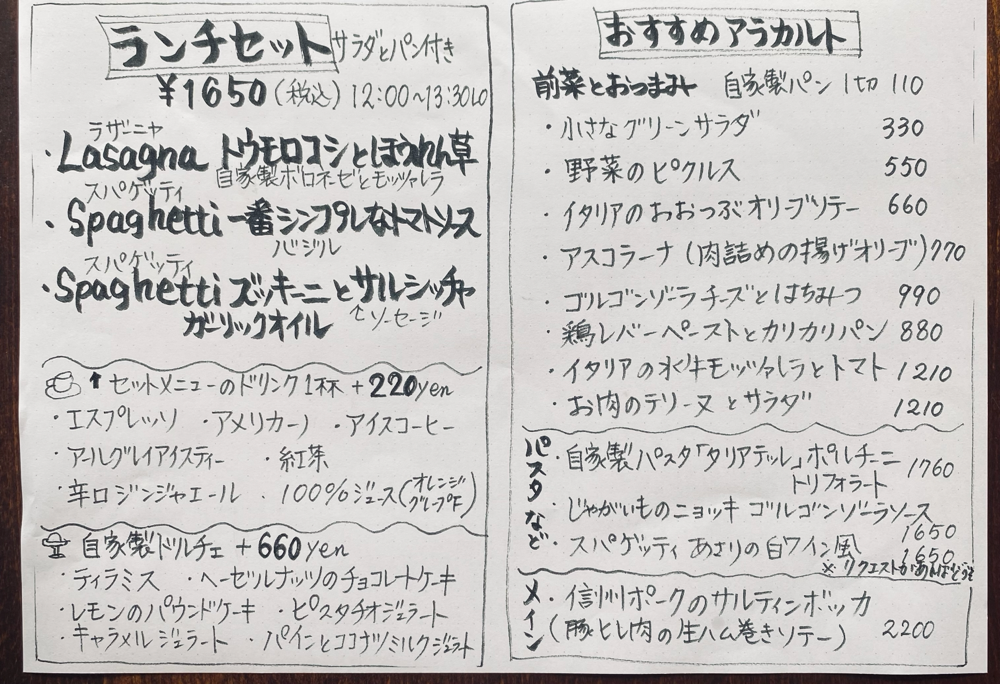 ランチセット サラダとパン付き
¥1650(税込) 12:00~13:30LO
ラザーニャ
・Lasagna トウモロコシとほうれん草
自家製ボロネーゼとモッツァレラ
スパゲッティ
・Spaghetti 一番シンプルなトマトソース
バジル
スパゲッティ
・Spaghetti ズッキーニとサルシッチャ
ガーリックオイル ↑ソーセージ
↑セットメニューのドリンク1杯 +220yen
・エスプレッソ ・アメリカーノ ・アイスコーヒー
・アールグレイアイスティー ・紅茶
・辛口ジンジャエール ・100%ジュース(オレンジ
グレープF)
自家製ドルチェ +660yen
・ティラミス ・ヘーゼルナッツのチョコレートケーキ
・レモンのパウンドケーキ ・ピスタチオジェラート
・キャラメルジェラート ・パインとココナツミルクジェラート
おすすめアラカルト
前菜とおつまみ 自家製パン 1切 110
・小さなグリーンサラダ 330
・野菜のピクルス 550
・イタリアのおおつぶオリーブソテー 660
・アスコラーナ(肉詰めの揚げオリーブ) 770
・ゴルゴンゾーラチーズとはちみつ 990
・鶏レバーペーストとカリカリパン 880
・イタリアの水牛モッツァレラとトマト 1210
・お肉のテリーヌとサラダ 1210
パスタなど
・自家製パスタ「タリアテッレ」ポルチーニ
トリフォラート 1760
・じゃがいものニョッキ ゴルゴンゾーラソース
1650
・スパゲッティ あさりの白ワイン風 1650
※リクエストがあればどうぞ
メイン
・信州ポークのサルティンボッカ
(豚ヒレ肉の生ハム巻きソテー) 2200